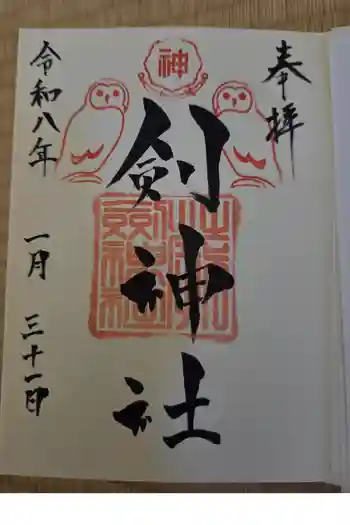 奉拝
神
剣神社
令和八年
一月 三十一日